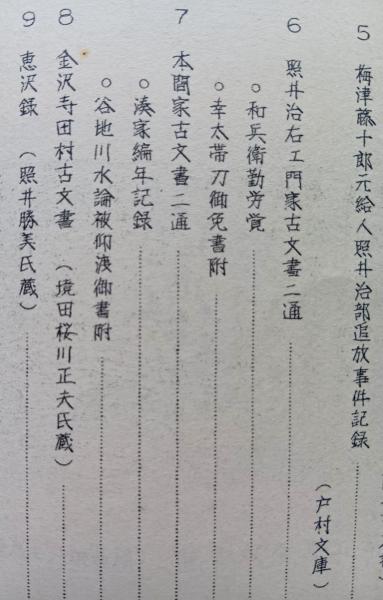 5 梅津藤十郎元給人照井治部追放事件記録
(戸村文庫)
6 照井治右エ門家古文書二通
○和兵衛勤労覚
○幸太帯刀御免書附
7 本間家古文書二通
○湊家編年記録
○谷地川水論被仰渡御書附
8 金沢寺田村古文書 (境田桜川正夫氏蔵)
9 恵沢録 (照井勝美氏蔵)